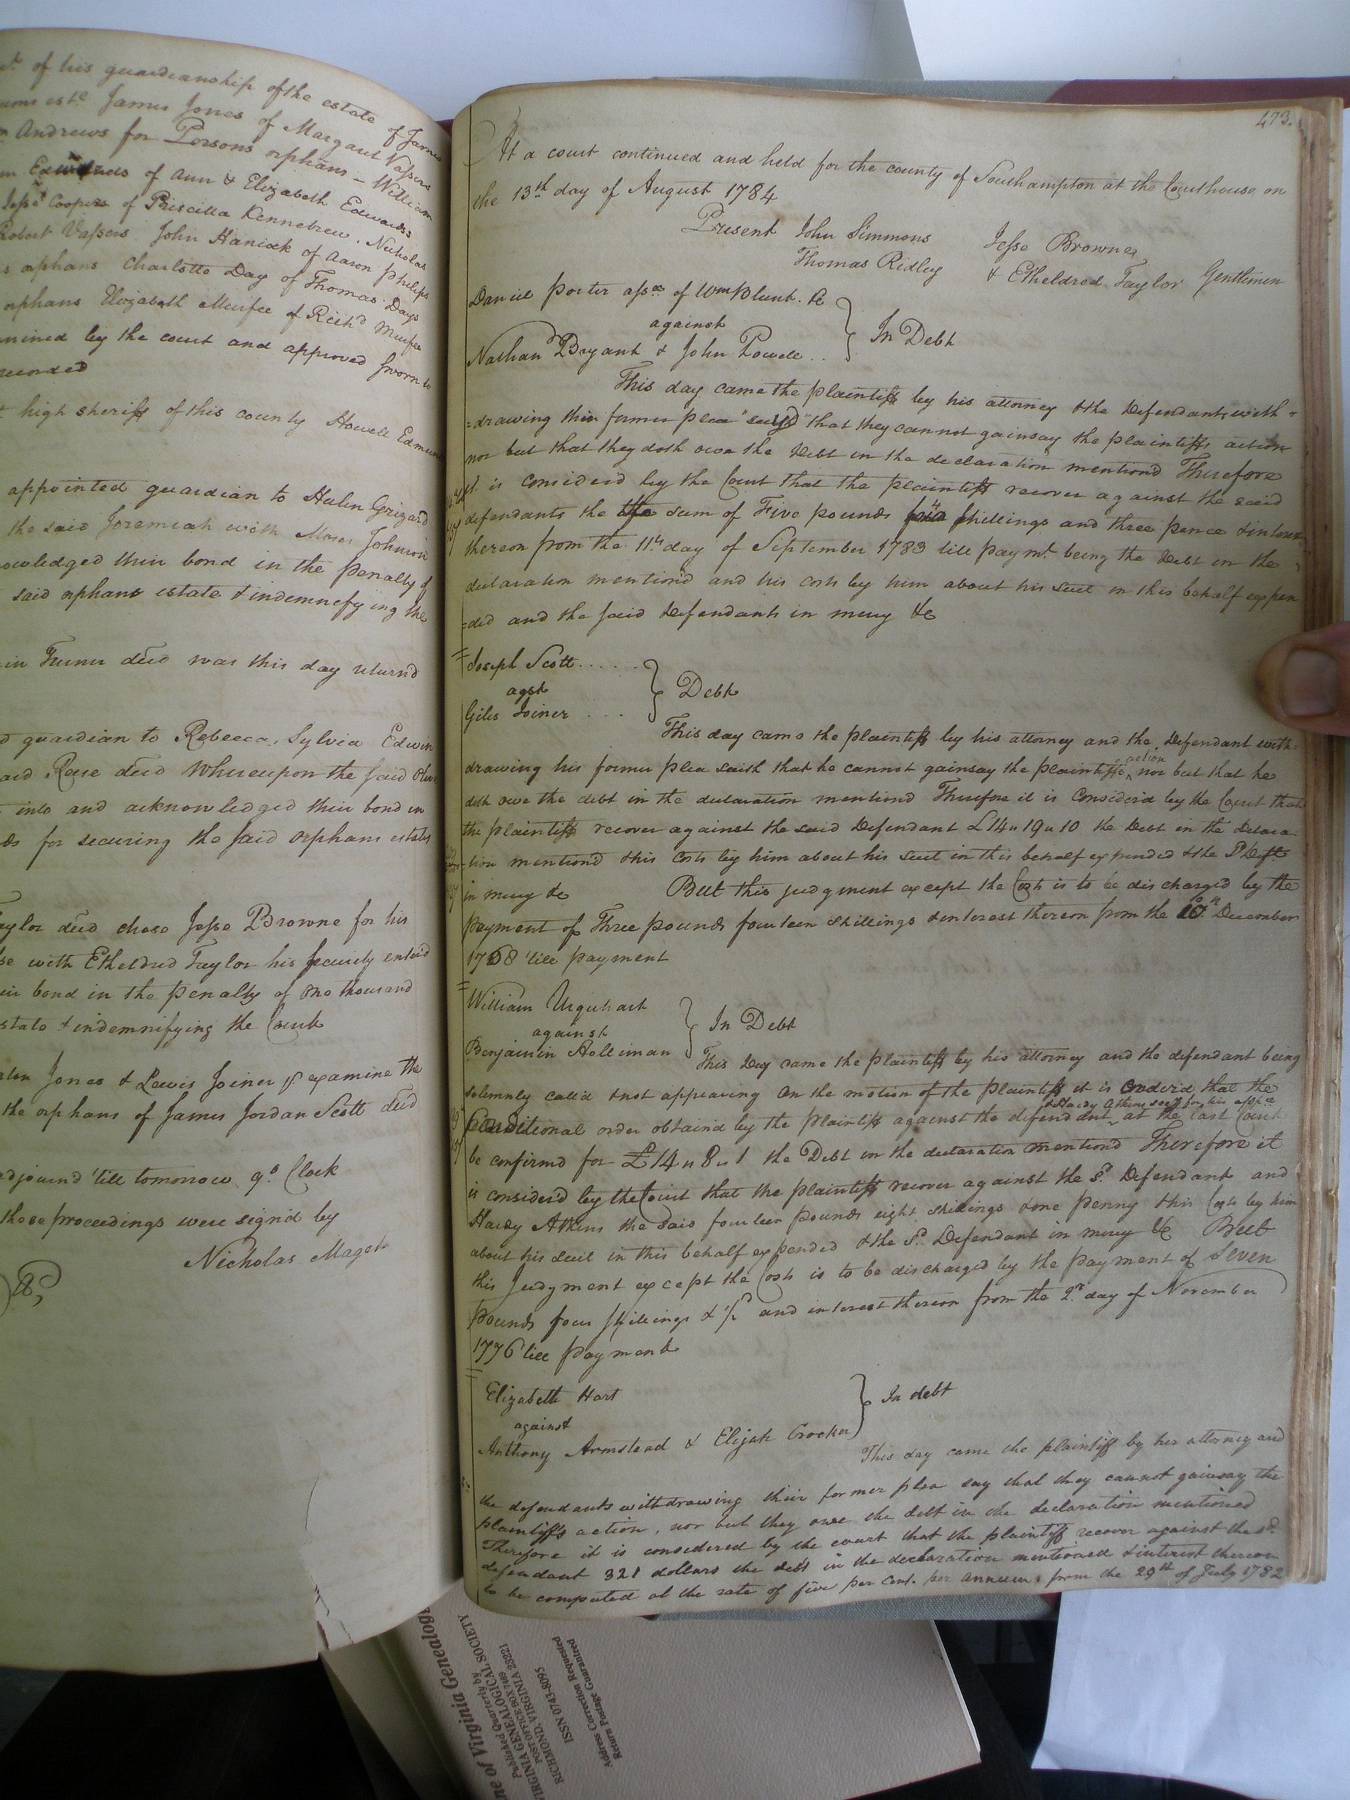 of his guardianship of the estate of James
James Jones of Margaret Vassers
Andrews for Persons orphans - William
Edwards of Ann & Elizabeth Edwards
Jesse Cooper of Priscilla Kennebrew. Nicholas
Robert Vassers John Haniak of Aaron Philips
orphans Charlotte Day of Thomas Days
orphans Elizabeth Murfee of Richd Murfee
by the court and approved sworn to
high sheriff of this county Howell
appointed guardian to Hulin Grizard
the said Jeremiah with Moses Johnson
their bond in the penalty of
said orphans estate & indemnefying the
deced was this day returnd
guardian to Rebecca, Sylvia Edwin
Rose deced Whereupon the said
into and acknowledged their bond in
for securing the said orphans estates
Taylor deced chose Jesse Browne for his
with Etheldred Taylor his security enterd
bond in the penalty of One thousand
& indemnifying the Court
Jones & Lewis Joiner to examine the
the orphans of James Jordan Scott deced
'till tomorrow 9 o Clock
those proceedings were signd by
Nicholas Maget
473.
At a court continued and held for the county of Southampton at the Courthouse on
the 13th day of August 1784
Present John Simmons Jesse Browne
Thomas Ridley & Etheldred Taylor Gentlemen
Daniel Porter asse of Wm Blunt.
against
Nathan Bryant & John Powell .. In Debt
This day came the plaintiff by his attorney & the Defendants with=
=drawing their former plea say'd that they cannot gainsay the plaintiffs action
nor but that they doth owe the Debt in the declaration mentiond Therefore
it is considerd by the Court that the plaintiff recover against the said
defendants the sum of Five pounds shillings and three pence & interest
thereon from the 11th day of September 1783 till paymt. being the Debt in the
declaration mentiond and his costs by him about his suit in this behalf expen
=ded and the said Defendants in mercy &c
Joseph Scott......
agst
Giles Joiner .... Debt
This day came the plaintiff by his attorney and the Defendant with=
drawing his former plea saith that he cannot gainsay the plaintiffs action nor but that he
doth owe the debt in the declaration mentiond Therefore it is Considerd by the Court that
the plaintiff recover against the said Defendant £14 " 19 " 10 the Debt in the Declara
tion mentiond & his Costs by him about his suit in this behalf expended & the Sd Deft
in mercy &c But this judgment except the Costs is to be discharged by the
payment of Three pounds fourteen shillings & interest thereon from the 10th December
1768 'till payment
William Urquhart
against
Benjamin Holliman In Debt
This Day came the plaintiff by his attorney and the defendant being
solemnly calld & not appearing On the motion of the plaintiff it is orderd that the
Conditional order obtaind by the plaintiff against the defendant & Hardy Atkins secty for his appce at the last Court
be confirmd for £14 " 8 " 1 the Debt in the declaration mentiond Therefore it
is considerd by the Court that the plaintiff recover against the sd. Defendant and
Hardy Atkins the said fourteen pounds eight shillings & one penny & his Costs by him
about his suit in this behalf expended & the Sd. Defendant in mercy &c But
this Judgment except the Costs is to be discharged by the payment of Seven
pounds four shillings & and interest thereon from the 2d. day of November
1776 till payment
Elizabeth Hart
against
Anthony Armstead & Elijah Crocker In debt
This day came the plaintiff by her attorney and
the defendants withdrawing their former plea say that they cannot gainsay the
plaintiffs action, nor but they owe the debt in the declaration mentioned
Therefore it is considered by the court that the plaintiff recover against the sd.
defendant 321 dollars the debt in the declaration mentioned & interest thereon
to be computed at the rate of five per cent. per annum from the 29th of July 1782
of Virginia Genealogi
Published Quarterly by
VIRGINIA GENEALOGICAL SOCIETY
POST OFFICE BOX 7469
RICHMOND, VIRGINIA 23221
ISSN 0743-8095
Address Correction Requested
Return Postage Guaranteed